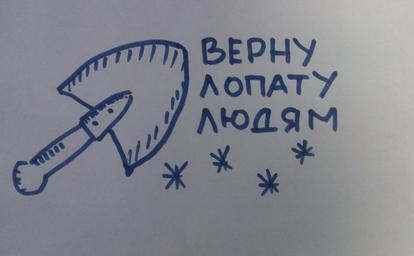 ВЕРНУ
ЛОПАТУ
ЛЮДЯМ